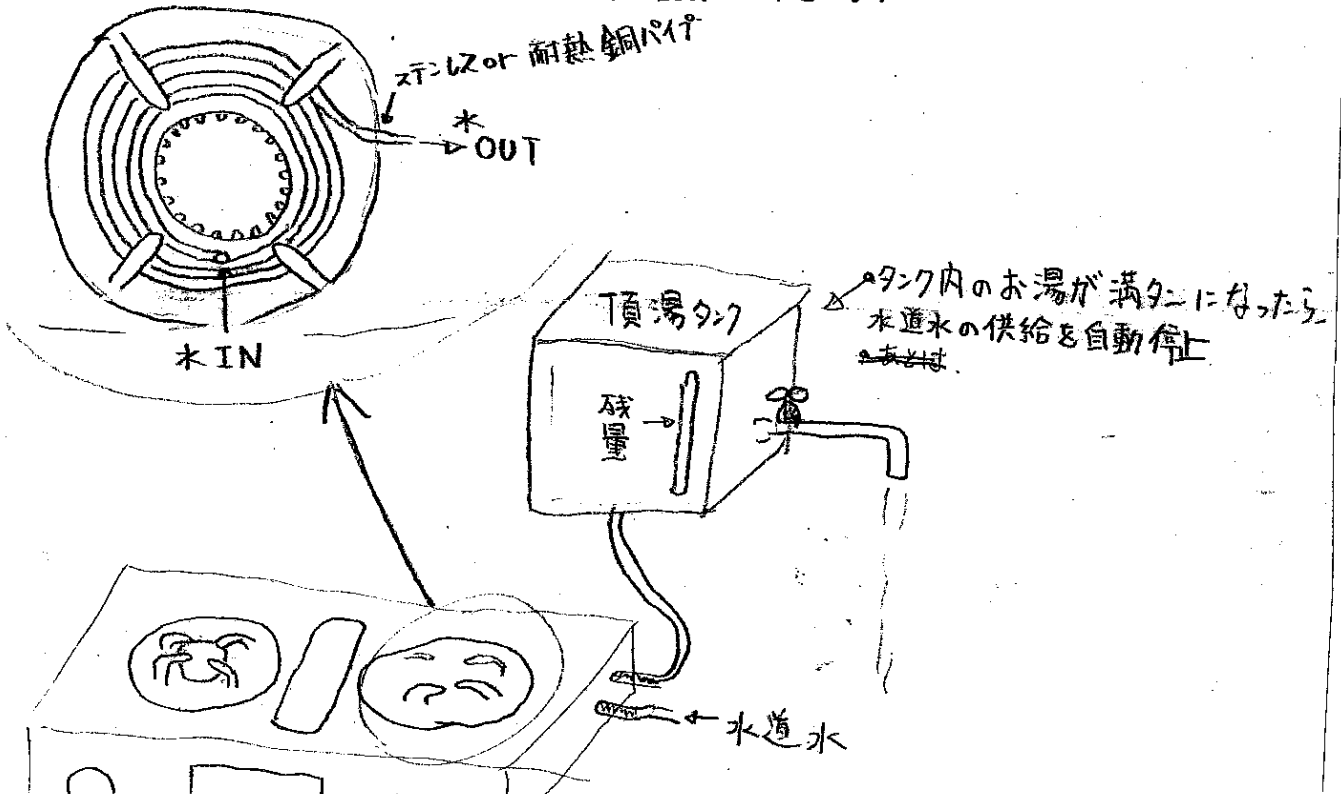 ステンレス or 耐熱銅パイプ
水
OUT
水 IN
頂湯タンク
残量
タンク内のお湯が満タンになったら
水道水の供給を自動停止
水道水